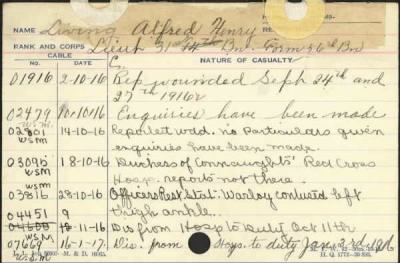 NAME Living Alfred Henry
RANK AND CORPS Lieut 31st 14th Bn. Form 56th Bn
CABLE NATURE OF CASUALTY
01916 2-10-16 Rep wounded Sept 24th and
27th 1916
02479 10/10/16 Enquiries have been made
02801 14-10-16 Reported wdd. no particulars given
WSM enquiries have been made.
03095 18-10-16 Duchess of Connaughts' Red Cross
WSM Hosp. reports not there.
WSM
03816 28-10-16 Officers Rest Stat. Worloy contused left
04451 9 thigh ankle...
04600 13-11-16 Dis from Hosp to Duty Oct 11th
07669 16-1-17. Dis. from Hosp. to duty Jan 3rd 1916
M. & D. 8051.
H. Q. 1772-39-893.